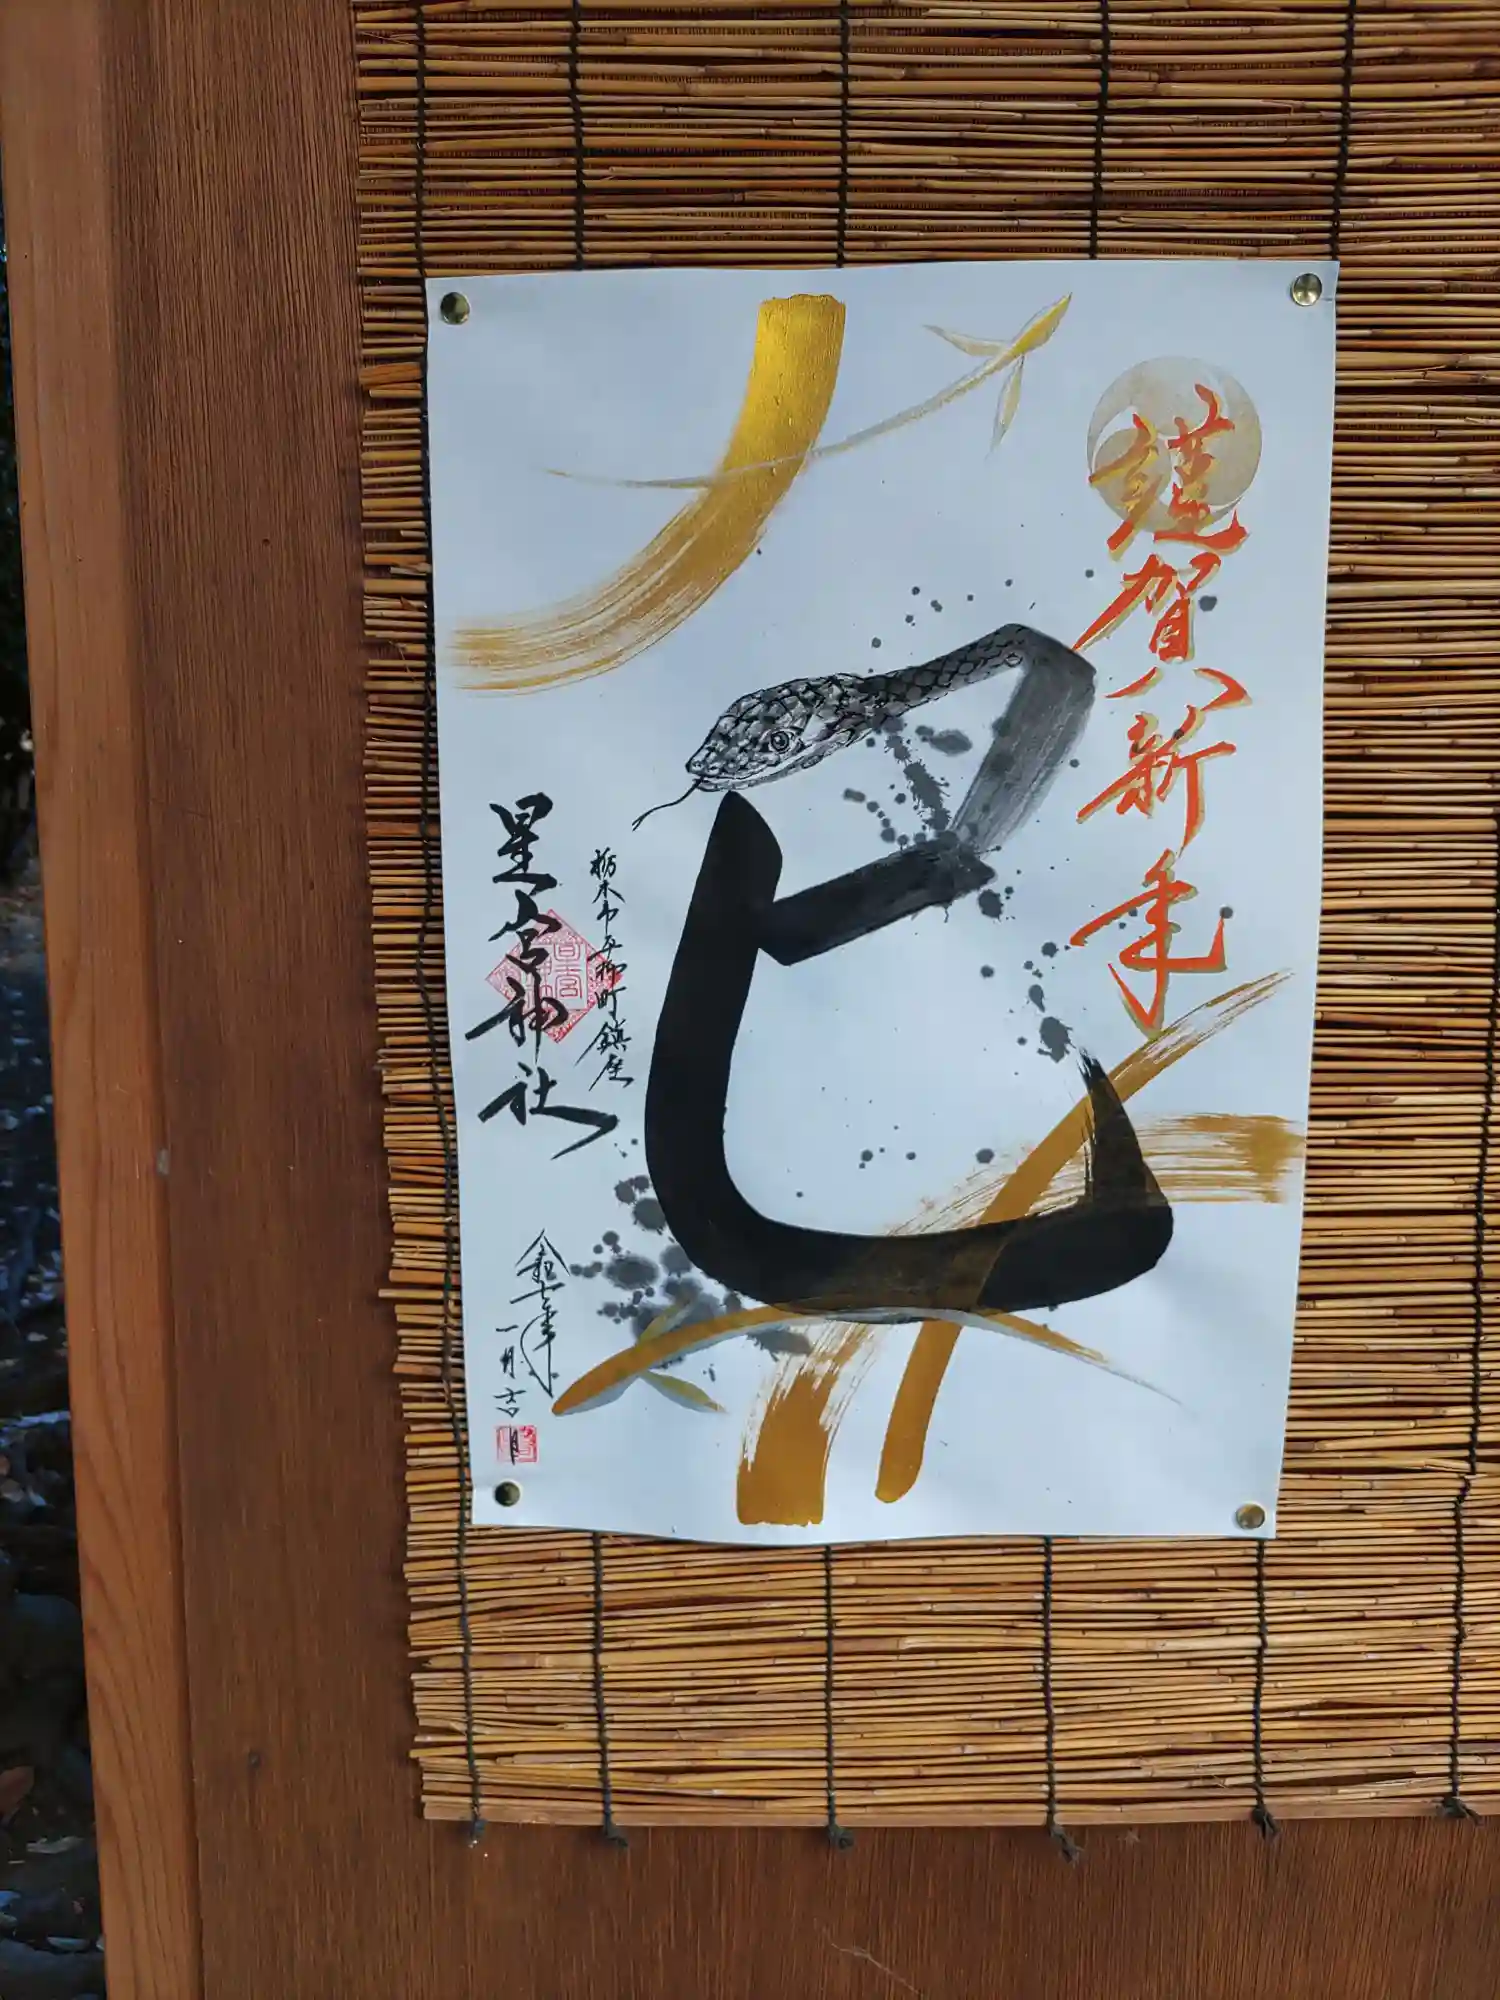 謹賀新年
巳
栃木市平柳町鎮座
星宮神社
令和七年
一月吉日